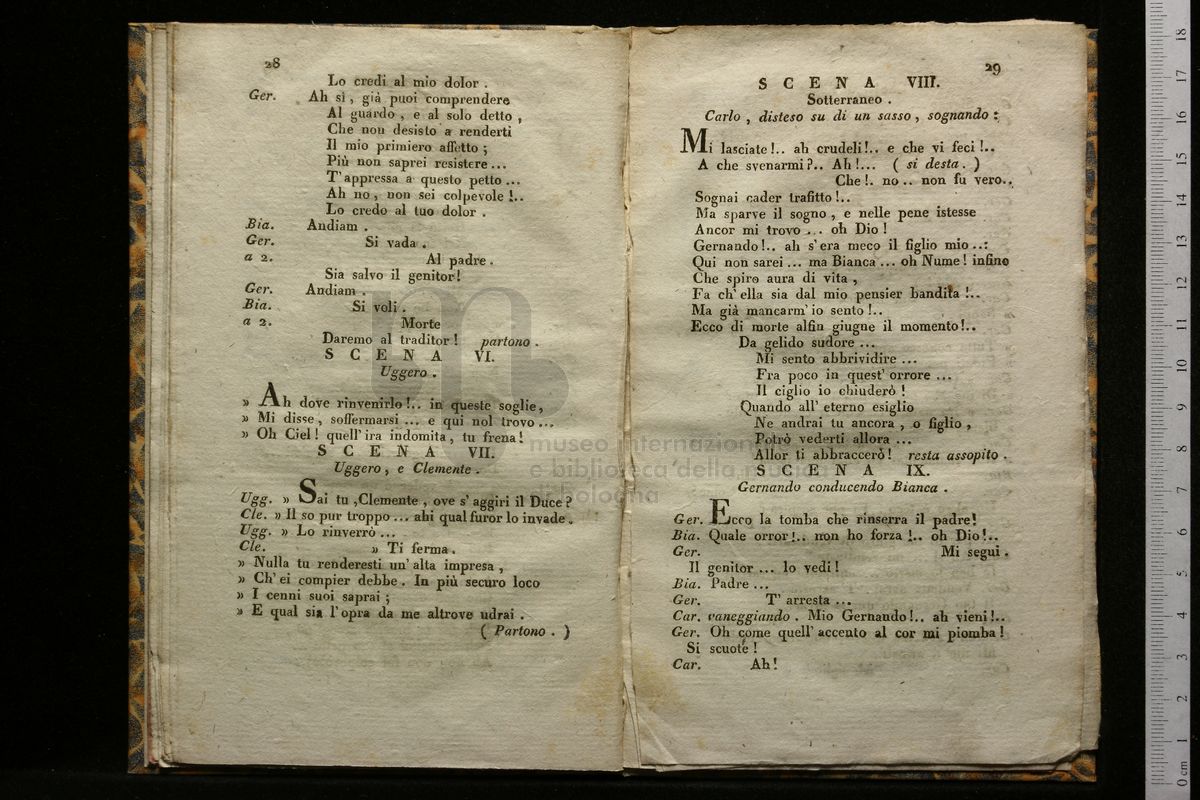 28
Lo credi al mio dolor .
Ger. Ah sì , già puoi comprendere
Al guardo , e al solo detto ,
Che non desisto a renderti
Il mio primiero affetto ;
Più non saprei resistere ...
T' appressa a questo petto ...
Ah no , non sei colpevole !..
Lo credo al tuo dolor .
Bia. Andiam .
Ger. Si vada .
a 2. Al padre .
Sia salvo il genitor!
Ger. Andiam .
Bia. Si voli .
a 2. Morte
Daremo al traditor ! partono .
SCENA VI.
Uggero .
» Ah dove rinvenirlo !.. in queste soglie,
» Mi disse , soffermarsi ... e qui nol trovo ...
» Oh Ciel ! quell' ira indomita , tu frena !
SCENA VII.
Uggero , e Clemente .
Ugg. » Sai tu ,Clemente , ove s' aggiri il Duce ?
Cle. » Il so pur troppo ... ahi qual furor lo invade .
Ugg. » Lo rinverrò ...
Cle. » Ti ferma .
» Nulla tu renderesti un' alta impresa ,
» Ch' ei compier debbe . In più securo loco
» I cenni suoi saprai ;
» E qual sia l'opra da me altrove udrai .
( Partono . )
29
SCENA VIII.
Sotterraneo .
Carlo , disteso su di un sasso , sognando :
Mi lasciate !.. ah crudeli !.. e che vi feci !..
A che svenarmi ?.. Ah !... ( si desta . )
Che !. no .. non fu vero..
Sognai cader trafitto !..
Ma sparve il sogno , e nelle pene istesse
Ancor mi trovo ... oh Dio !
Gernando !.. ah s' era meco il figlio mio ..:
Qui non sarei ... ma Bianca ... oh Nume ! infino
Che spiro aura di vita ,
Fa ch' ella sia dal mio pensier bandita !..
Ma già mancarm' io sento !..
Ecco di morte alfin giugne il momento !..
Da gelido sudore ...
Mi sento abbrividire ...
Fra poco in quest' orrore ...
Il ciglio io chiuderò !
Quando all' eterno esiglio
Ne andrai tu ancora , o figlio ,
Potrò vederti allora ...
Allor ti abbraccerò ! resta assopito .
SCENA IX.
Gernando conducendo Bianca .
Ger. Ecco la tomba che rinserra il padre !
Bia. Quale orror !.. non ho forza !.. oh Dio !..
Ger. Mi segui .
Il genitor ... lo vedi !
Bia. Padre ...
Ger. T' arresta ...
Car. vaneggiando . Mio Gernando !.. ah vieni !..
Ger. Oh come quell' accento al cor mi piomba !
Si scuote !
Car. Ah !
museo internazionale
e biblioteca della musica
di bologna
0 cm 1 2 3 4 5 6 7 8 9 10 11 12 13 14 15 16 17 18